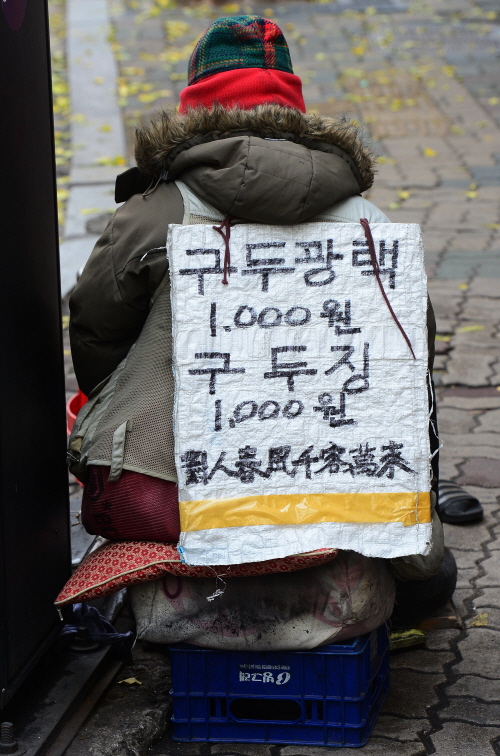 구두광택
1.000원
구두징
1,000원
對人春風千客萬來